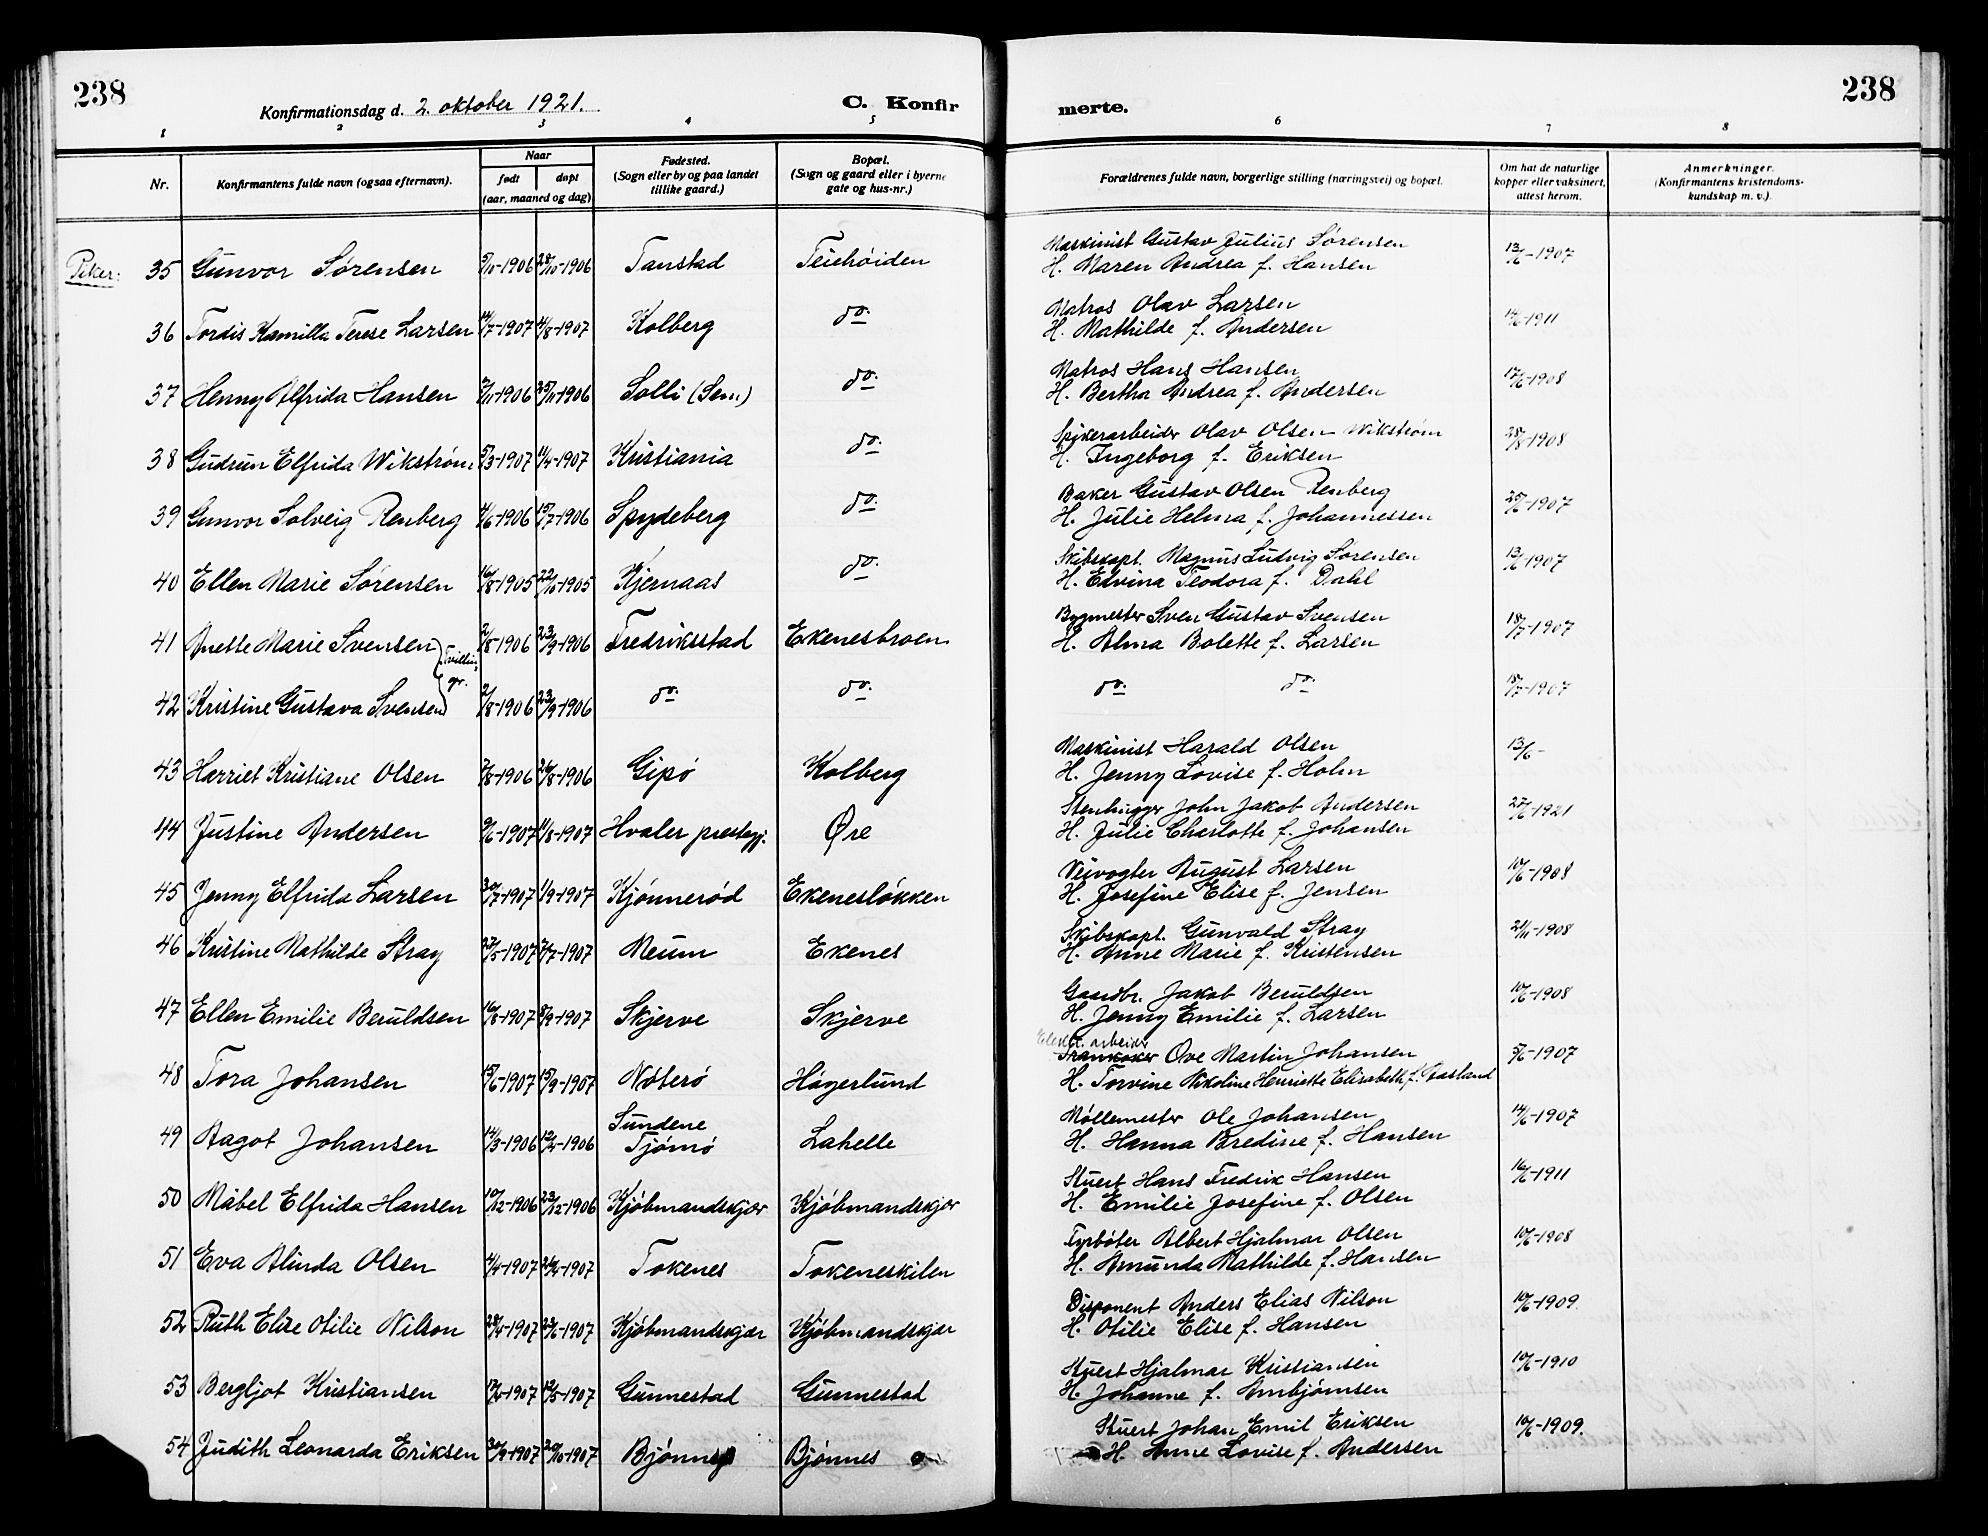 238
Konfirmationsdag d. 2. oktober 1921.
C. Konfir
merte.
238
1 2 3 4 5 6 7 8
Nr.
Konfirmantens fulde navn (ogsaa efternavn).
Naar
født døpt
(aar, maaned og dag)
Fødested.
(Sogn eller by og paa landet
tillike gaard.)
Bopæl.
(Sogn og gaard eller i byerne
gate og hus-nr.)
Forældrenes fulde navn, borgerlige stilling (næringsvei) og bopæl.
Om hat de naturlige
kopper eller vaksinert,
attest herom.
Anmerkninger.
(Konfirmantens kristendoms-
kundskap m. v.).
Piker:
Maskinist Gustav Julius Sørensen
35 Gunvor Sørensen 5/10-1906 28/10-1906 Tanstad Teiehøiden H. Maren Andrea f. Hansen 13/6-1907
Matros Olav Larsen
36 Tordis Kamilla Terese Larsen 14/7-1907 4/8-1907 Kolberg do. H. Mathilde f. Andersen 14/6-1911
Matros Hans Hansen
37 Henny Alfrida Hansen 2/11-1906 25/11-1906 Solli (Sem) do. H. Bertha Andrea f. Andersen 17/6-1908
Spikerarbeider Olav Olsen Wikstrøm
38 Gudrun Elfrida Wikstrøm 5/3-1907 11/4-1907 Kristiania do. H. Ingeborg f. Eriksen 28/8-1908
Baker Gustav Olsen Renberg
39 Gunvor Solveig Renberg 4/6-1906 15/7-1906 Spydeberg do. H. Julie Helma f. Johannessen 25/6-1907
Skibskapt. Magnus Ludvig Sørensen
40 Ellen Marie Sørensen 16/8-1905 22/10-1905 Kjernaas do. H. Edvina Teodora f. Dahl 13/6-1907
Bygmester Sven Gustav Svensen
41 Anette Marie Svensen 2/8-1906 23/9-1906 Fredriksstad Ekenesbroen H. Alma Bolette f. Larsen 18/7-1907
Tvillin-
ger.
42 Kristine Gustava Svensen 2/8-1906 23/9-1906 do. do. do. do. 18/7-1907
Maskinist Harald Olsen
43 Harriet Kristiane Olsen 7/8-1906 26/8-1906 Gipø Kolberg H. Jenny Lovise f. Holm 13/6-
Stenhugger John Jakob Andersen
44 Justine Andersen 9/6-1907 11/8-1907 Hvaler prestegj. Øre H. Julie Charlotte f. Johansen 27/6-1921
Veivogter August Larsen
45 Jenny Elfrida Larsen 30/7-1907 1/9-1907 Kjønnerød Ekenesløkken H. Josefine Elise f. Jensen 10/6-1908
Skibskapt. Gunvald Stray
46 Kristine Mathilde Stray 27/5-1907 7/7-1907 Meum Ekenes H. Anne Marie f. Kristensen 21/11-1908
Gaardbr. Jakob Beruldsen
47 Ellen Emilie Beruldsen 16/8-1907 8/9-1907 Skjerve Skjerve H. Jenny Emilie f. Larsen 10/6-1908
Elektr. arbeider
Trankoker Ove Martin Johansen
48 Tora Johansen 15/6-1907 15/9-1907 Nøterø Hågerlund H. Torvine Nikoline Henriette Elisabeth f. Aasland 5/6-1907
Møllemester Ole Johansen
49 Aagot Johansen 14/3-1906 12/4-1906 Sundene Tjømø Lahelle H. Hanna Bredine f. Hansen 14/6-1907
Stuert Hans Fredrik Hansen
50 Mabel Elfrida Hansen 10/12-1906 23/12-1906 Kjøbmandskjær Kjøbmandskjær H. Emilie Josefine f. Olsen 16/6-1911
Fyrbøter Albert Hjalmar Olsen
51 Eva Alinda Olsen 4/4-1907 28/4-1907 Tokenes Tokeneskilen H. Amunda Mathilde f. Hansen 10/6-1908
Disponent Anders Elias Nilson
52 Ruth Elise Otilie Nilson 28/4-1907 23/6-1907 Kjøbmandskjær Kjøbmandskjær H. Otilie Elise f. Hansen 10/6-1909
Stuert Hjalmar Kristiansen
53 Bergljot Kristiansen 17/4-1907 12/5-1907 Gunnestad Gunnestad H. Johanne f. Arnbjørnsen 10/6-1910
Stuert Johan Emil Eriksen
54 Judith Leonarda Eriksen 30/9-1907 20/10-1907 Bjønnes Bjønnes H. Anne Lovise f. Andersen 10/6-1909.